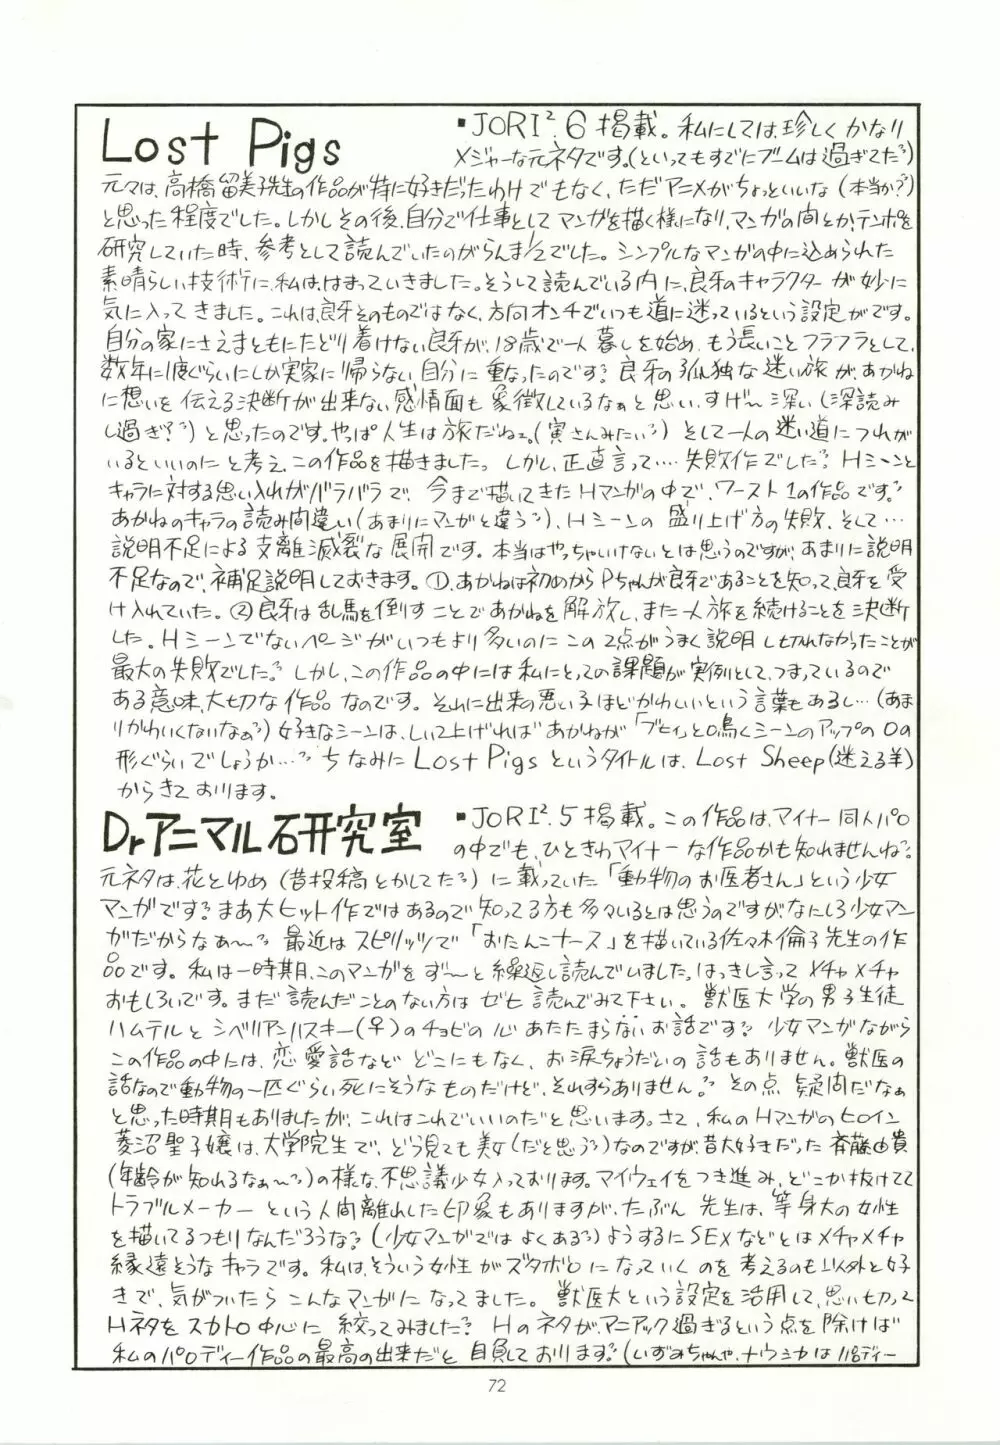 Lost Pigs
・JORI².6掲載。私にしては珍しくかなり
メジャーな元ネタです。(といってもすでにブームは過ぎてた?)
元々は、高橋留美子先生の作品が特に好きだったわけでもなく、ただアニメがちょっといいな(本当か?)
と思った程度でした。しかしその後、自分で仕事としてマンガを描く様になり、マンガの間とか、テンポを
研究していた時、参考として読んでいたのがらんま1/2でした。シンプルなマンガの中に込められた
素晴らしい技術に、私は、はまっていきました。そうして読んでいる内に、良牙のキャラクターが妙に
気に入ってきました。これは、良牙そのものではなく、方向オンチでいつも道に迷っているという設定がです。
自分の家にさえまともにたどり着けない良牙が、18歳で一人暮しを始め、もう長いことフラフラとして、
数年に1度ぐらいにしか実家に帰らない自分に重なったのです?良牙の孤独な迷い旅が、あかね
に想いを伝える決断が出来ない感情面も象徴しているなぁと思い、すげ〜深い(深読み
し過ぎ??)と思ったのです。やっぱ人生は旅だねェ。(寅さんみたい?)そして一人の迷い道につれが
いるといいのにと考え、この作品を描きました。しかし、正直言って‥‥失敗作でした?Hシーンと
キャラに対する思い入れがバラバラで、今まで描いてきたHマンガの中で、ワースト1の作品です?
あかねのキャラの読み間違い(あまりにマンガと違う?)、Hシーンの盛り上げ方の失敗、そして…
説明不足による支離滅裂な展開です。本当はやっちゃいけないとは思うのですが、あまりに説明
不足なので、補足説明しておきます。①、あかねは初めからPちゃんが良牙であることを知って、良牙を受
け入れていた。②良牙は乱馬を倒すことであかねを解放し、また一人旅を続けることを決断
した。Hシーンでないページがいつもより多いのにこの2点がうまく説明し切れなかったことが
最大の失敗でした?しかし、この作品の中には私にとっての課題が実例として、つまっているので
ある意味、大切な作品なのです。それに出来の悪い子ほどかわいいという言葉もあるし…(あま
りかわいくないなぁ?)好きなシーンは、しいて上げればあかねが「ブヒィ」と鳴くシーンのアップの口の
形ぐらいでしょうか‥‥?ちなみにLost Pigsというタイトルは、Lost Sheep(迷える羊)
からきております。
Drアニマル研究室
・JORI².5掲載。この作品は、マイナー同人パロ
の中でも、ひときわマイナーな作品かも知れませんね?
元ネタは、花とゆめ(昔投稿とかしてた?)に載っていた「動物のお医者さん」という少女
マンガです?まあ大ヒット作ではあるので知ってる方も多々いるとは思うのですが、なにしろ少女マン
ガだからなぁ〜?最近はスピリッツで「おたんこナース」を描いている佐々木倫子先生の作
品です。私は一時期、このマンガをず〜と繰返し読んでいました。はっきし言ってメチャメチャ
おもしろいです。まだ読んだことのない方はぜひ読んでみて下さい。獣医大学の男子生徒
ハムテルとシベリアンハスキー(♀)のチョビの心あたたまらないお話です?少女マンガながら
この作品の中には、恋愛話などどこにもなく、お涙ちょうだいの話もありません。獣医の
話なので動物の一匹ぐらい死にそうなものだけど、それすらありません?その点疑問だなぁ
と思った時期もありましたが、これはこれでいいのだと思います。さて、私のHマンガのヒロイン
菱沼聖子嬢は、大学院生で、どう見ても美女(だと思う?)なのですが、昔大好きだった斉藤由貴
(年齢が知れるなぁ〜?)の様な、不思議少女入っております。マイウェイをつき進み、どこか抜けてて
トラブルメーカーという人間離れした印象もありますが、たぶん先生は、等身大の女性
を描いてるつもりなんだろうな?(少女マンガではよくある?)ようするにSEXなどとはメチャメチャ
縁遠そうなキャラです。私は、そういう女性がズタボロになっていくのを考えるのも以外と好
きで、気がついたらこんなマンガになってました。獣医大という設定を活用して、思い切って
Hネタをスカトロ中心に絞ってみました?Hのネタが、マニアック過ぎるという点を除けば
私のパロディー作品の最高の出来だと自負しております?(いずみちゃんや、ナウシカはパロディー
72